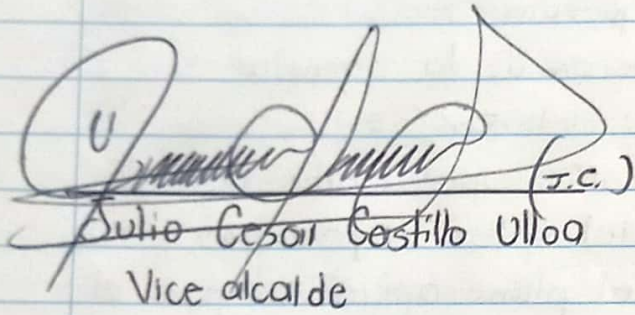 (J.C.)
Julio Cesar Costillo Ulloa
Vice alcalde